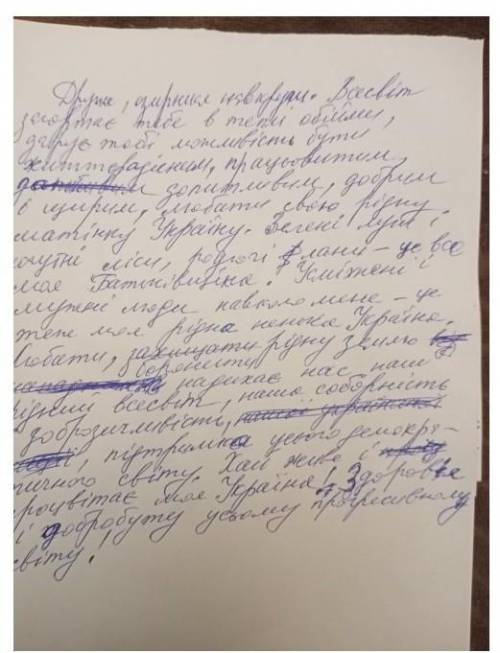 Друже, озирнися навкруги. Всесвіт
загортає тебе в теплі обійми,
дарує тобі можливість бути
життєрадісним, працьовитим,
допитливим, добрим
і щирим, любити свою рідну
матінку Україну. Зелені луги і
ліси, родючі лани – це все
моя Батьківщина. Усміхнені і
мужні люди навколо мене – це
теж моя рідна ненька Україна.
Любити, захищати рідну землю
боронити
надихає нас наш
рідний всесвіт, наша соборність
доброзичливість,
підтримка усього демокра-
тичного світу. Хай живе і
процвітає моя Україна! Здоров'я
і добробуту усьому прогресивному
світу!